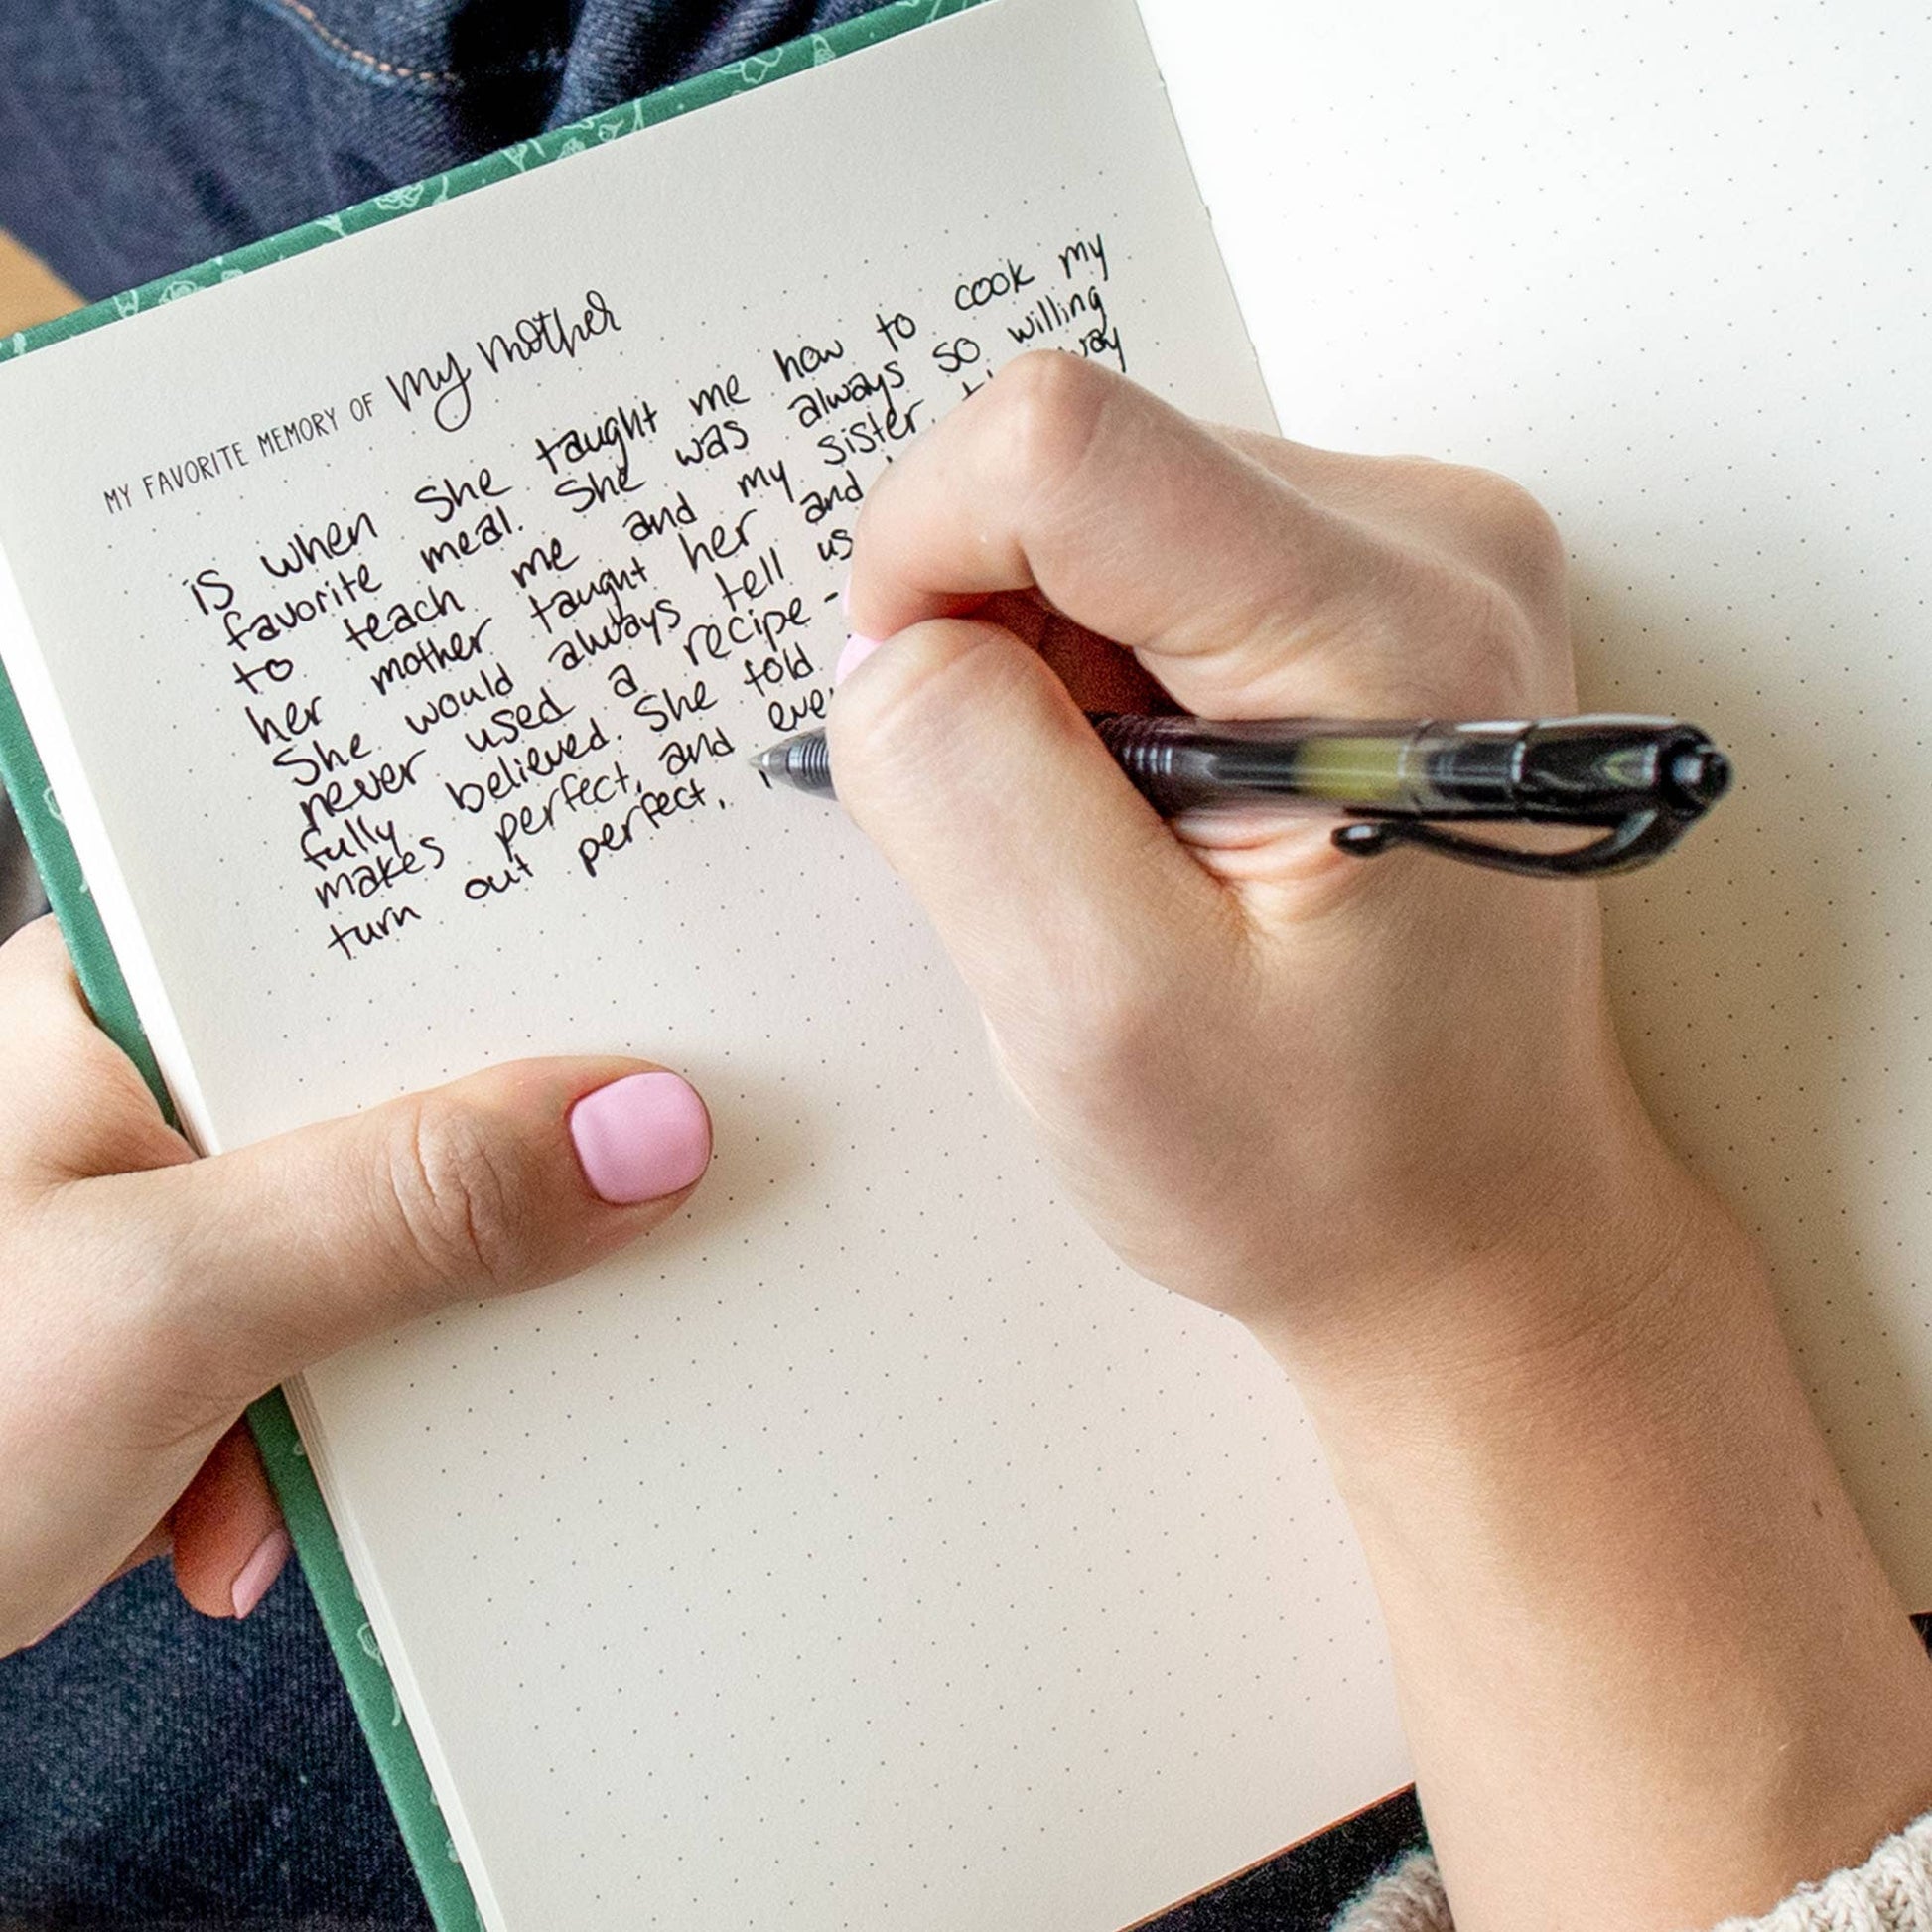 MY FAVORITE MEMORY OF my mother
is when she taught me how to cook my
favorite meal. She was always so willing
to teach me and my sister way
her mother taught her and
She would always tell us
never used a recipe -
fully believed. She told
makes perfect, and
turn out perfect,